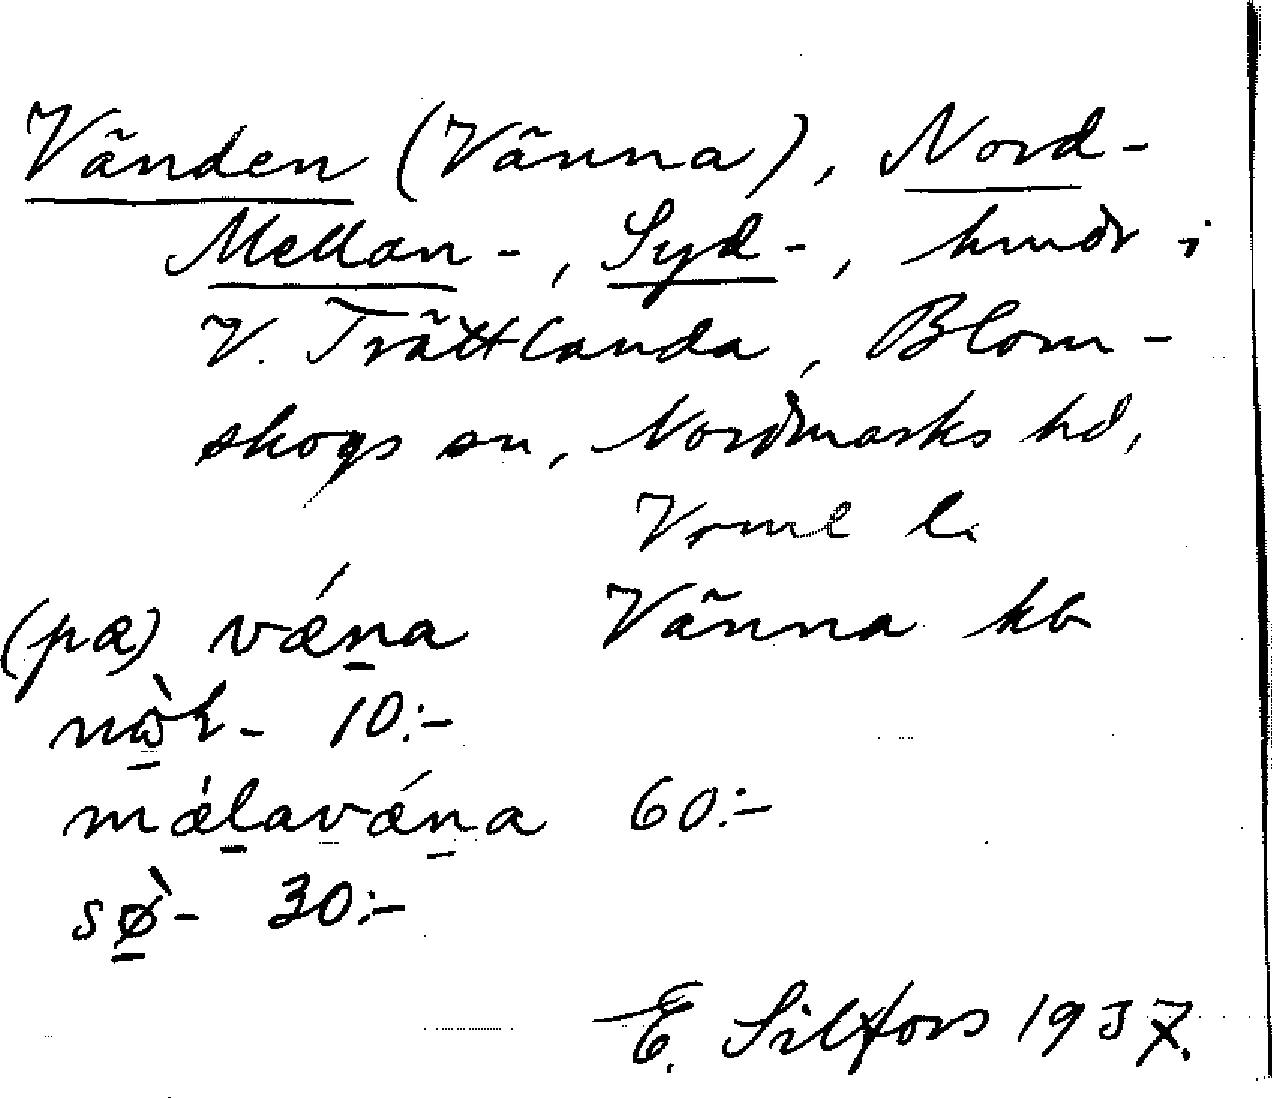 Vänden (Vänna), Nord-
Mellan-, Syd-, hmdr i
V. Trättlanda, Blom-
skogs sn, Nordmarks hd,
Vrml l.
(pæ) vǽna Vänna kb
- 10:-
mǽlavǽna 60:-
sø̀- 30:-
E. Silfors 1937.